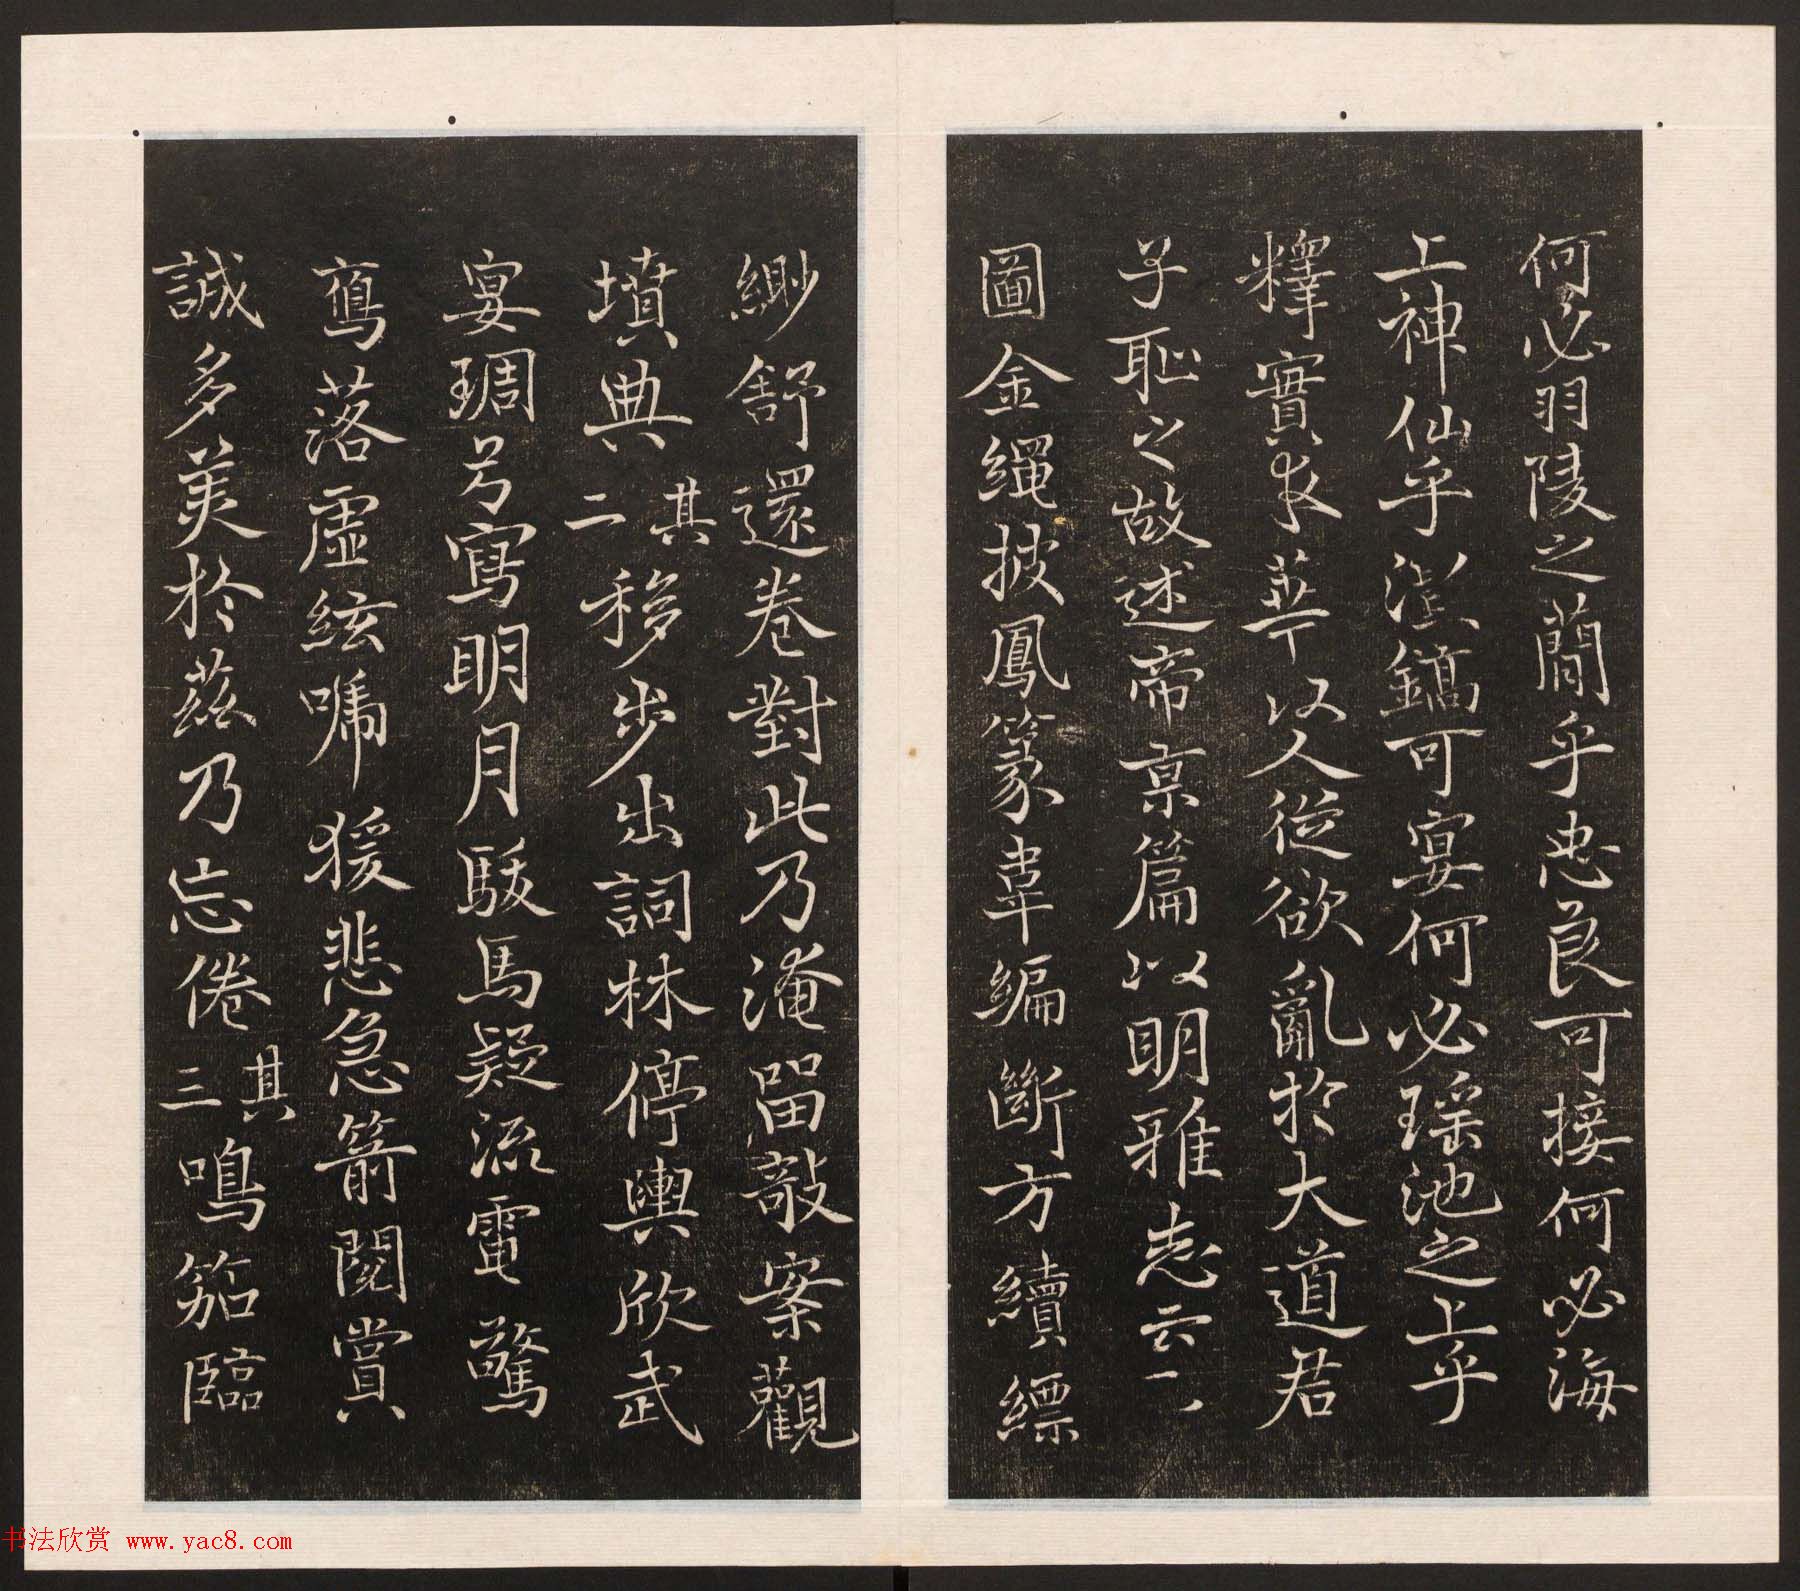 何必羽陵之蕳乎忠良可接何必海
上神仙乎澧鎬可宴何必瑤池之上乎
釋實求華以人從欲亂於大道君
子恥之故述帝亰篇以明雅志云
圖金繩披鳳篆韋編斷方續縹
緲舒還卷對此乃淹留敲案觀
墳典其二移步出詞林停輿欣武
宴琱弓寫明月駿馬疑流電驚
鴈落虛絃嗁猨悲急箭閱賞
誠多美於茲乃忘倦其三鳴笳臨
书法欣赏 www.yac8.com